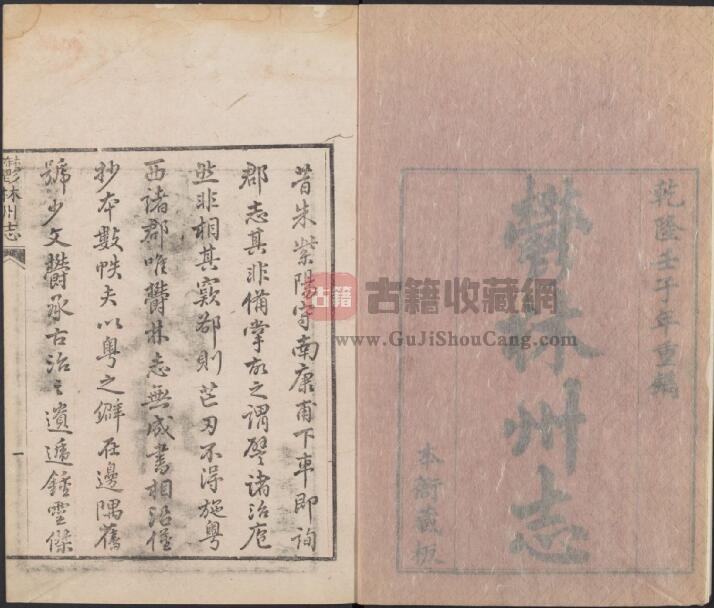 乾隆壬子年重編
鬱林州志
本衙藏板
昔朱紫陽守南康甫下車即詢
郡志其非備掌故之謂譬諸治庖
然非相其窾郤則芒刃不得施粵
西諸郡唯鬱林志無成書相沿僅
抄本數帙夫以粵之僻在邊隅舊
號少文鬱承古治之遺遞鍾靈傑
鬱林州志
一
古籍
古籍收藏網
www.GuJiShouCang.com